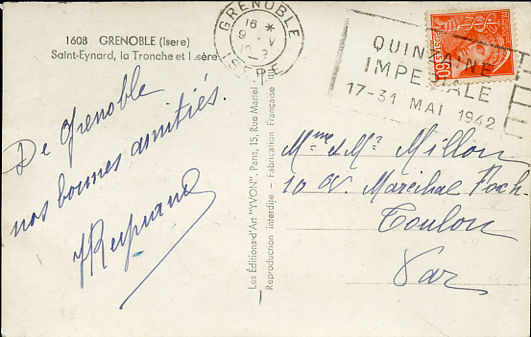 1608 GRENOBLE (Isère)
Saint-Eynard, la Tronche et Isère
GRENOBLE
16 *
9 V
ISERE
QUINZAINE
IMPERIALE
17-31 MAI 1942
POSTES
De Grenoble
nos bonnes amitiés.
Les Éditions d'Art "YVON", Paris, 15, Rue Martel
Reproduction interdite - Fabrication Française
Mme & Mr Millon
10 Av. Maréchal Foch
Toulon
Var